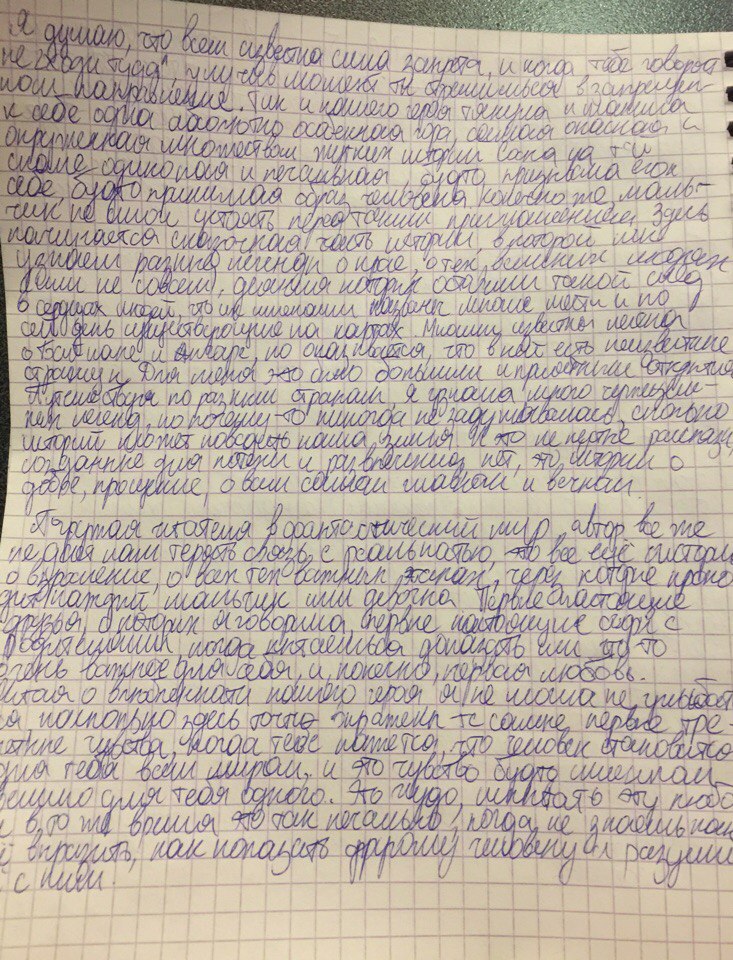 Я думаю, что всем известна сила запрета, и когда тебе говорят
не ходи туда", улучив момент ты стремишься в запрещен-
ном направлении. Так и нашего героя тянула и манила
к себе одна абсолютно особенная гора, самая опасная и
окружённая множеством жутких историй. Сама
одинокая и печальная, будто призвала его к
себе, будто принимая образ человека конечно же, маль-
чик не смог устоять перед таким приглашением. Здесь
начинается сказочная часть истории, в которой мы
узнаем разные легенды о крае, о тех, великих людях
или не совсем, деяния которых оставили такой след
в сердцах людей, что их именами названы многие места и по
сей день существующие на картах. Многим известны легенды
о Байкале и Ангаре, но оказывается, что в них есть неизвестные
страницы. Для меня это было большим и приятным открытием
Путешествуя по разным странам, я узнала много чужезем-
ных легенд, но почему-то никогда не задумывалась, сколько
историй может поведать наша земля. И это не пустые рассказы,
созданные для потехи и развлечения, нет, это истории о
добре, прощение, о всем самом главном и вечном.
Погружая читателя в фантастический мир, автор все же
не давая нам терять связь с реальностью, это все ещё история
о взросление, о всех тех важных этапах, через которые прохо
дит каждый мальчик или девочка Первые настоящие
друзья, о которых я говорила, первые настоящие ссоры с
родителями, когда пытаешься доказать им что-то
очень важное для себя, и, конечно, первая любовь.
Читая о влюбленности нашего героя я не могла не улыбать
ся насколько здесь точно выражены те самые первые тре-
петные чувства, когда тебе кажется, что человек становится
для тебя всем миром, и это чувство будто
для тебя одного. Это чудо, испытать эту любовь
и в то же время это так печально, когда не знаешь как
её выразить, как показать другому человеку и
с ним.